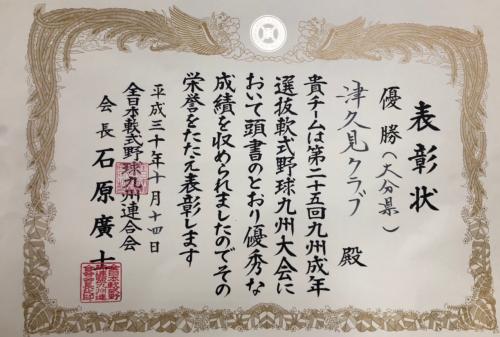 表彰状
優勝(大分県)
津久見クラブ 殿
貴チームは第二十五回九州成年
選抜軟式野球九州大会に
おいて頭書のとおり優秀な
成績を収められましたのでその
栄誉をたたえ表彰します
平成三十年十月十四日
全日本軟式野球九州連合会
会長 石原廣士